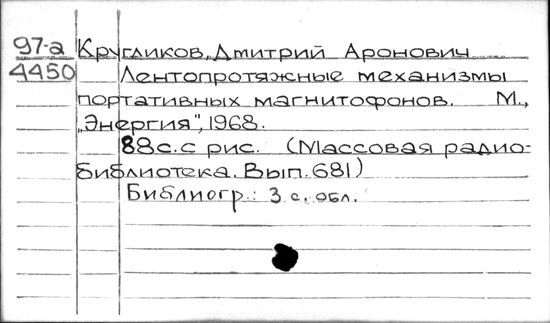 97-а Кругликов, Дмитрий Аронович
4450 Лентопротяжные механизмы
портативных магнитофонов. М.,
„Энергия", 1968.
88 с. с рис. (Массовая радио-
библиотека. Вып. 681)
Библиогр.: 3 с. обл.